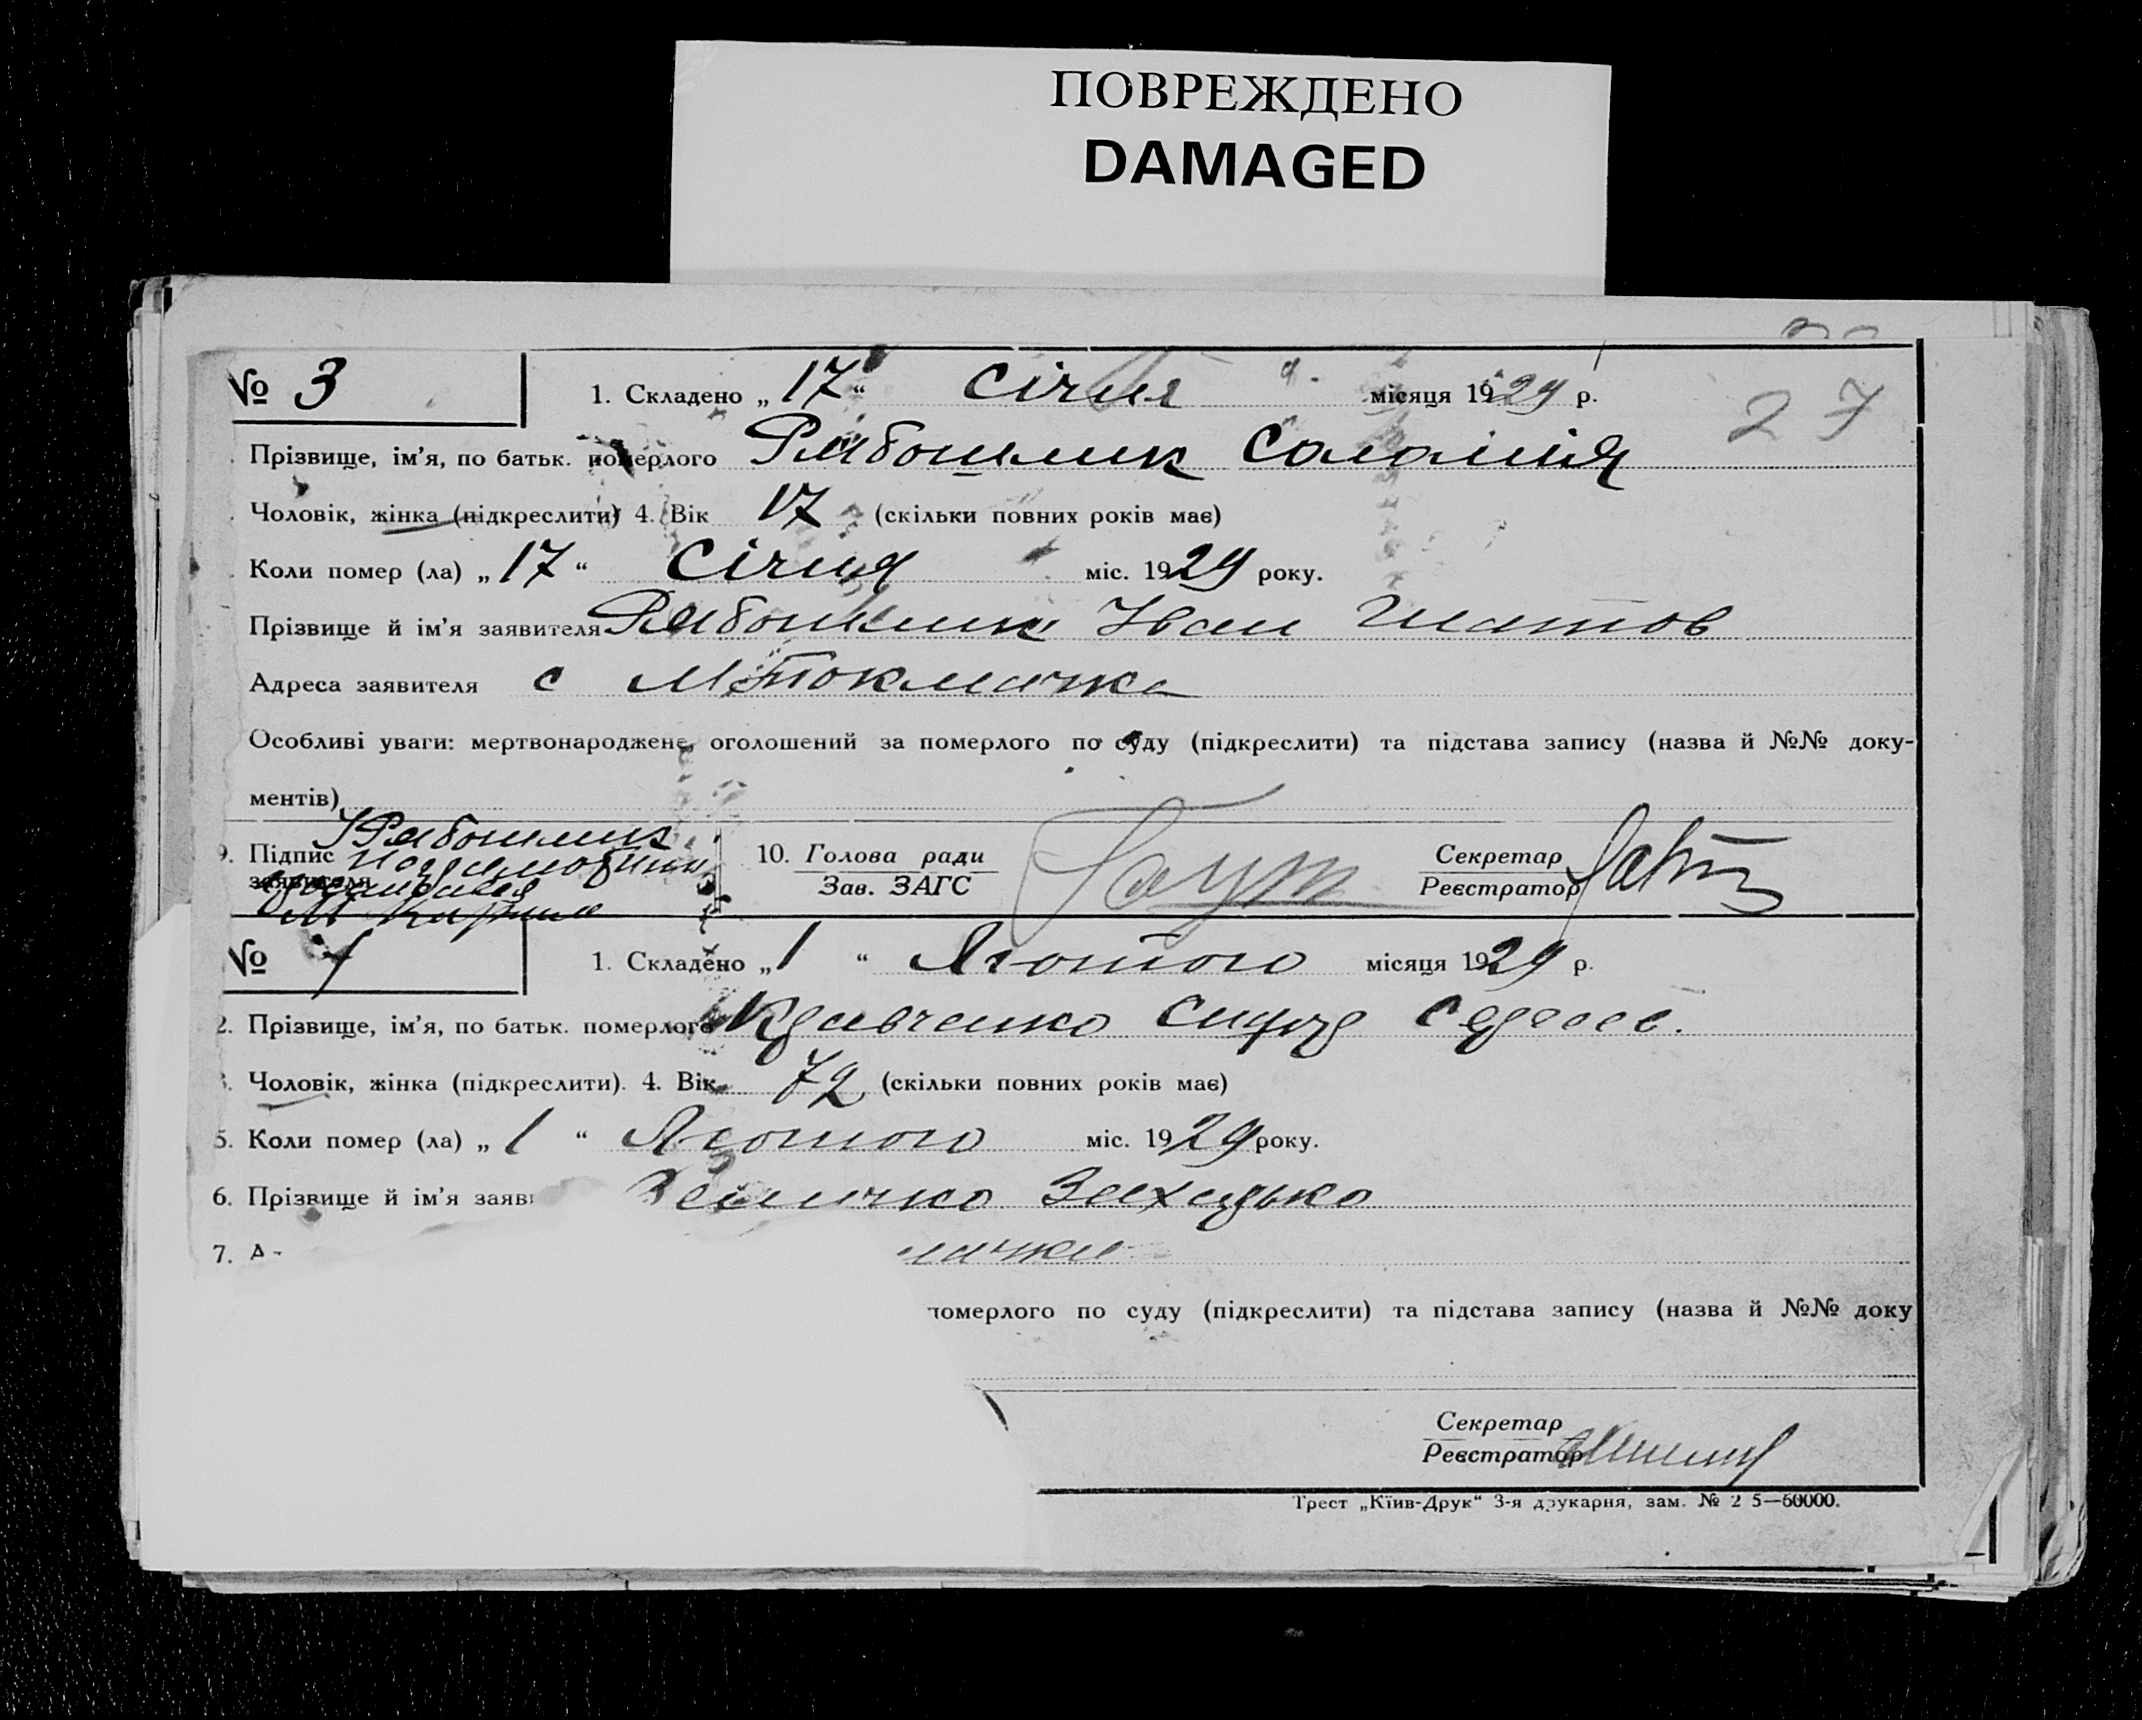 ПОВРЕЖДЕНО
DAMAGED
27
№ 3
1. Складено „ 17 “ Січня місяця 1929 р.
Прізвище, ім’я, по батьк. померлого Рябошлик Соломія
Чоловік, жінка (підкреслити) 4. Вік 17 (скільки повних років має)
Коли помер (ла) „ 17 “ Січня міс. 1929 року.
Прізвище й ім’я заявителя Рябошлик Іван
Адреса заявителя с М Токмачка
Особливі уваги: мертвонароджене, оголошений за померлого по суду (підкреслити) та підстава запису (назва й №№ доку-
ментів)
9. Підпис заявителя Рябошлик
10. Голова ради
Зав. ЗАГС
Секретар
Реєстратор
№ 4
1. Складено „ 1 “ Лютого місяця 1929 р.
2. Прізвище, ім’я, по батьк. померлого Кравченко
3. Чоловік, жінка (підкреслити). 4. Вік 72 (скільки повних років має)
5. Коли помер (ла) „ 1 “ Лютого міс. 1929 року.
6. Прізвище й ім’я заяви
7. А
мачка
померлого по суду (підкреслити) та підстава запису (назва й №№ доку
Секретар
Реєстратор
Трест „Київ-Друк“ 3-я друкарня, зам. № 2 5—60000.